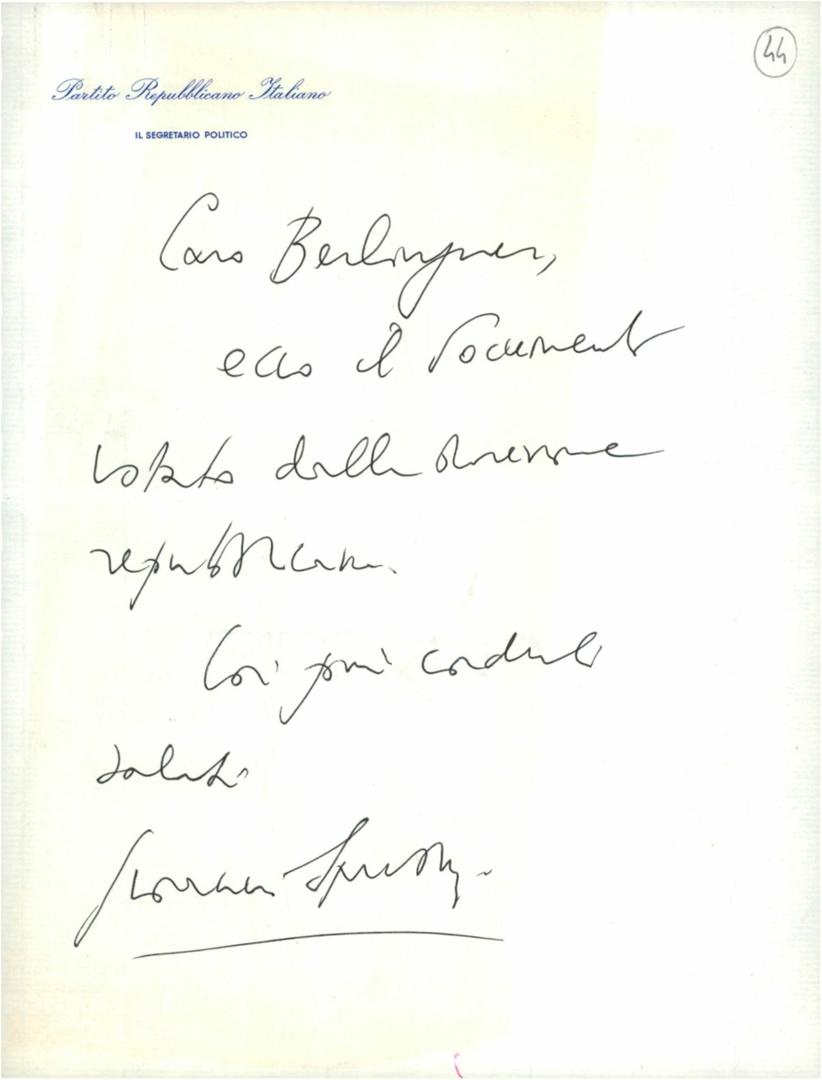 44
Partito Repubblicano Italiano
IL SEGRETARIO POLITICO
Caro Berlinguer,
ecco il documento
votato dalla direzione
repubblicana.
Coi più cordiali
saluti
Giovanni Spadolini